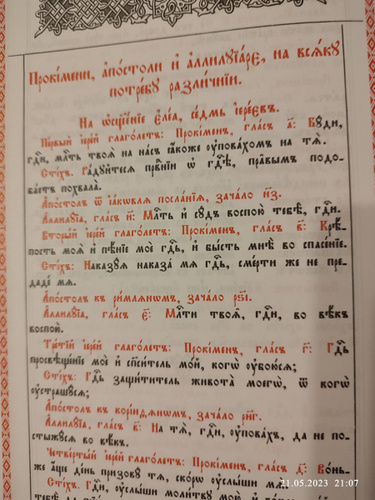 Прокі́мени, а҆по́столи и҆ а҆ллилꙋїа́ре, на всѧ́кꙋ
потре́бꙋ разли́чнїи.
На ѡ҆сщ҃е́нїе є҆ле́а, се́дмь і҆ере́евъ.
Пе́рвый і҆ере́й глаго́летъ: Прокі́менъ, гла́съ а҃: Бꙋ́ди,
гдⷭ҇и, млⷭ҇ть твоѧ̀ на на́съ ꙗ҆́коже ᲂу҆пова́хомъ на тѧ̀.
Сті́хъ: Ра́дꙋйтесѧ првⷣнїи ѡ҆ гдⷭ҇ѣ, пра̑вымъ подо-
ба́етъ похвала̀.
А҆по́столъ ѿ і҆а́кѡвлѧ посла́нїѧ, зача́ло н҃з.
А҆ллилꙋ́їа, гла́съ и҃: Млⷭ҇ть и҆ сꙋ́дъ воспою̀ тебѣ̀, гдⷭ҇и.
Вторы́й і҆ере́й глаго́летъ: Прокі́менъ, гла́съ в҃: Крѣ́-
пость моѧ̀ и҆ пѣ́нїе моѐ гдⷭ҇ь, и҆ бы́сть мнѣ̀ во спасе́нїе.
Сті́хъ: Наказꙋ́ѧ наказа́ мѧ гдⷭ҇ь, сме́рти же не пре-
даде́ мѧ.
А҆по́столъ къ ри́млѧнымъ, зача́ло рѕ҃і.
А҆ллилꙋ́їа, гла́съ є҃: Млⷭ҇ти твоѧ̑, гдⷭ҇и, во вѣ́къ
воспою̀.
Тре́тїй і҆ере́й глаго́летъ: Прокі́менъ, гла́съ г҃: Гдⷭ҇ь
просвѣще́нїе моѐ и҆ сп҃си́тель мо́й, когѡ̀ ᲂу҆бою́сѧ;
Сті́хъ: Гдⷭ҇ь защи́титель живота̀ моегѡ̀, ѿ когѡ̀
ᲂу҆страшꙋ́сѧ;
А҆по́столъ къ корі́нѳѧнѡмъ, зача́ло рн҃г.
А҆ллилꙋ́їа, гла́съ в҃: На тѧ̀, гдⷭ҇и, ᲂу҆пова́хъ, да не по-
стыжꙋ́сѧ во вѣ́къ.
Четве́ртый і҆ере́й глаго́летъ: Прокі́менъ, гла́съ д҃: Во́нь-
же а҆́ще де́нь призовꙋ́ тѧ, ско́рѡ ᲂу҆слы́ши мѧ̀.
Сті́хъ: Гдⷭ҇и, ᲂу҆слы́ши моли́твꙋ мою̀
21.05.2023 21:07